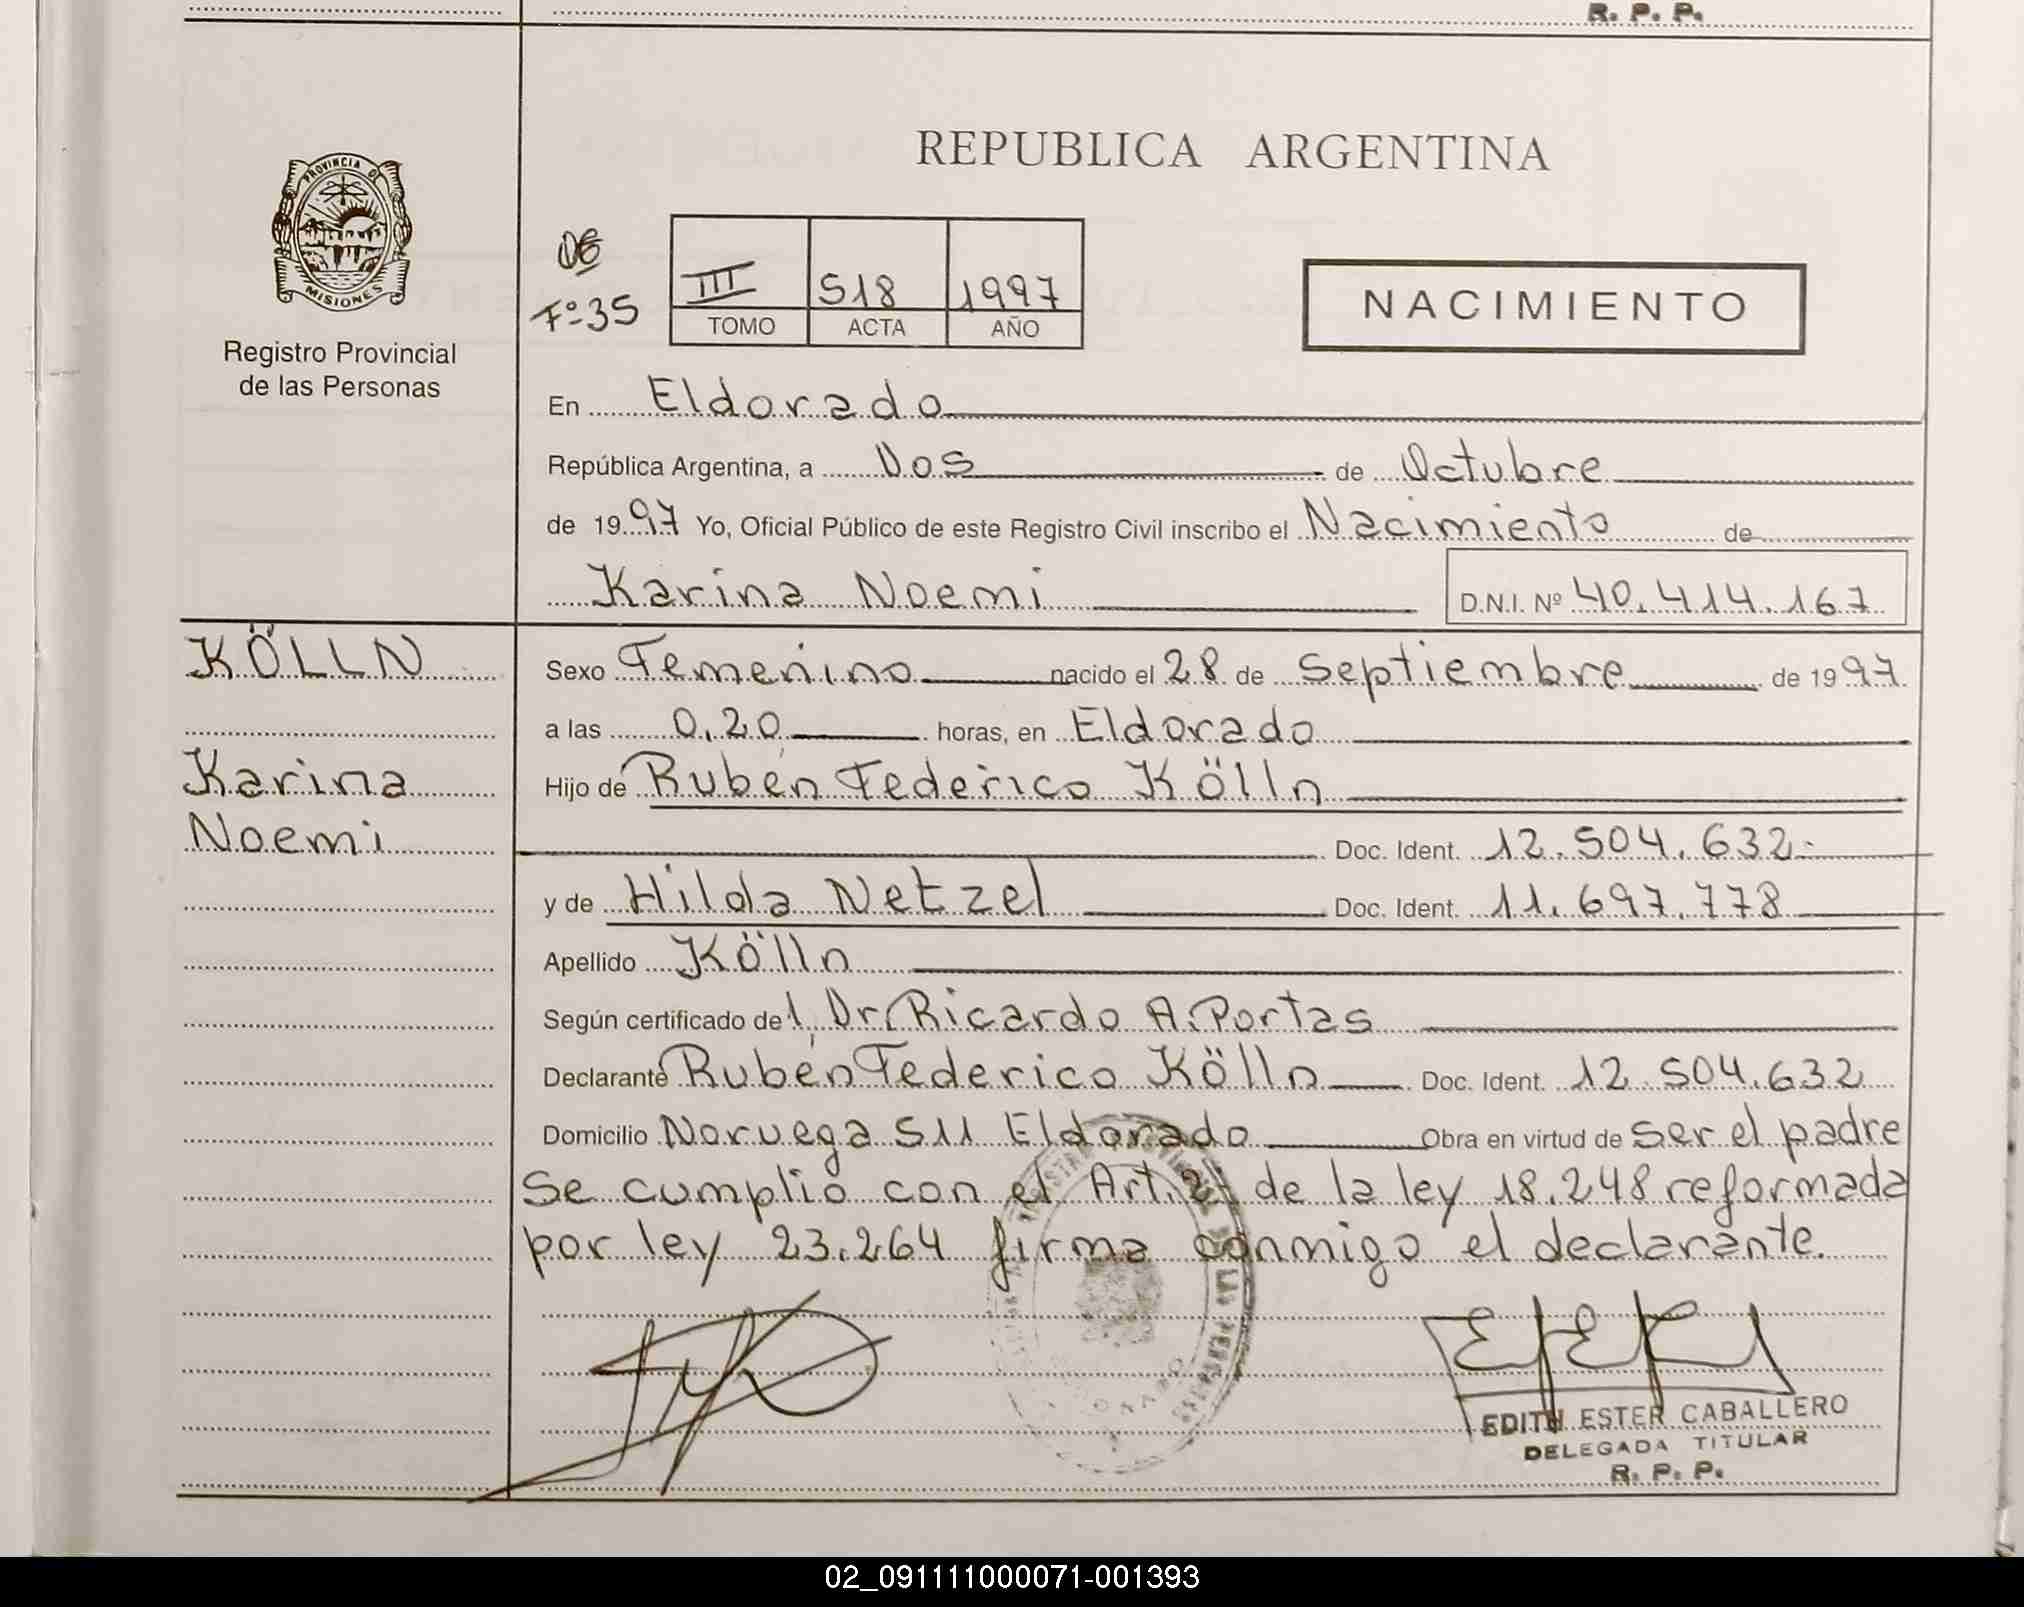 R. P. P.
REPUBLICA ARGENTINA
PROVINCIA D
MISIONES
Registro Provincial
de las Personas
Fº 35
III 518 1997
TOMO ACTA AÑO
NACIMIENTO
En Eldorado
República Argentina, a Dos de Octubre
de 1997 Yo, Oficial Público de este Registro Civil inscribo el Nacimiento de
Karina Noemi D.N.I. Nº 40.414.167
KÖLLN
Karina
Noemi
Sexo Femenino nacido el 28 de Septiembre de 1997
a las 0,20 horas, en Eldorado
Hijo de Rubén Federico Kölln
Doc. Ident. 12.504.632
y de Hilda Netzel Doc. Ident. 11.697.778
Apellido Kölln
Según certificado del Dr. Ricardo A. Portas
Declarante Rubén Federico Kölln Doc. Ident. 12.504.632
Domicilio Noruega 511 Eldorado Obra en virtud de ser el padre
Se cumplio con el Art. de la ley 18.248 reformada
por ley 23.264 firma conmigo el declarante.
EDITH ESTER CABALLERO
DELEGADA TITULAR
R. P. P.
02_091111000071-001393